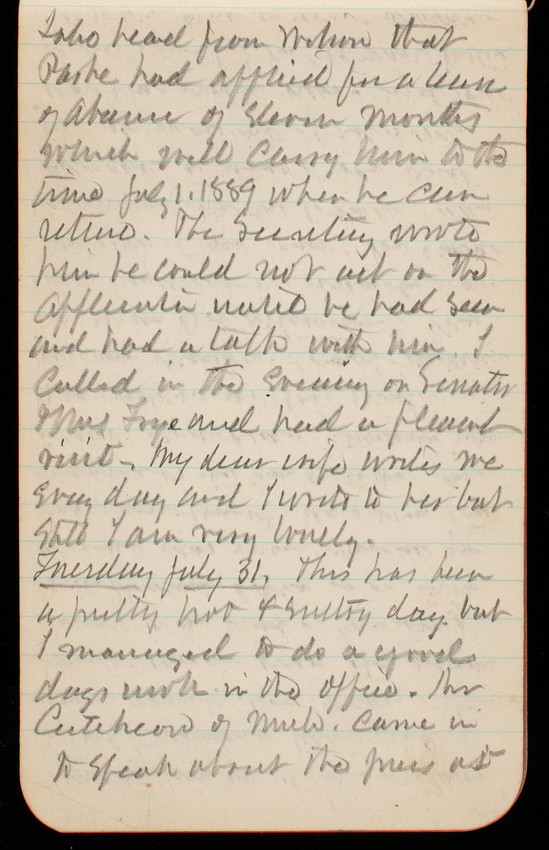 I also heard from Wilson that
Parke had applied for a leave
of absence of Eleven months
which will carry him to the
time July 1. 1889 when he can
retire. The Secretary wrote
him he could not act on the
application until he had seen
and had a talk with him. I
called in the Evening on Senator
& Mrs Frye and had a pleasant
visit. My dear wife writes me
Every day and I write to her but
still I am very lonely.
Tuesday July 31. This has been
a pretty hot & sultry day. but
I managed to do a good
days work in the office. Mr
Cutcheon of Mich. came in
to speak about the piers at